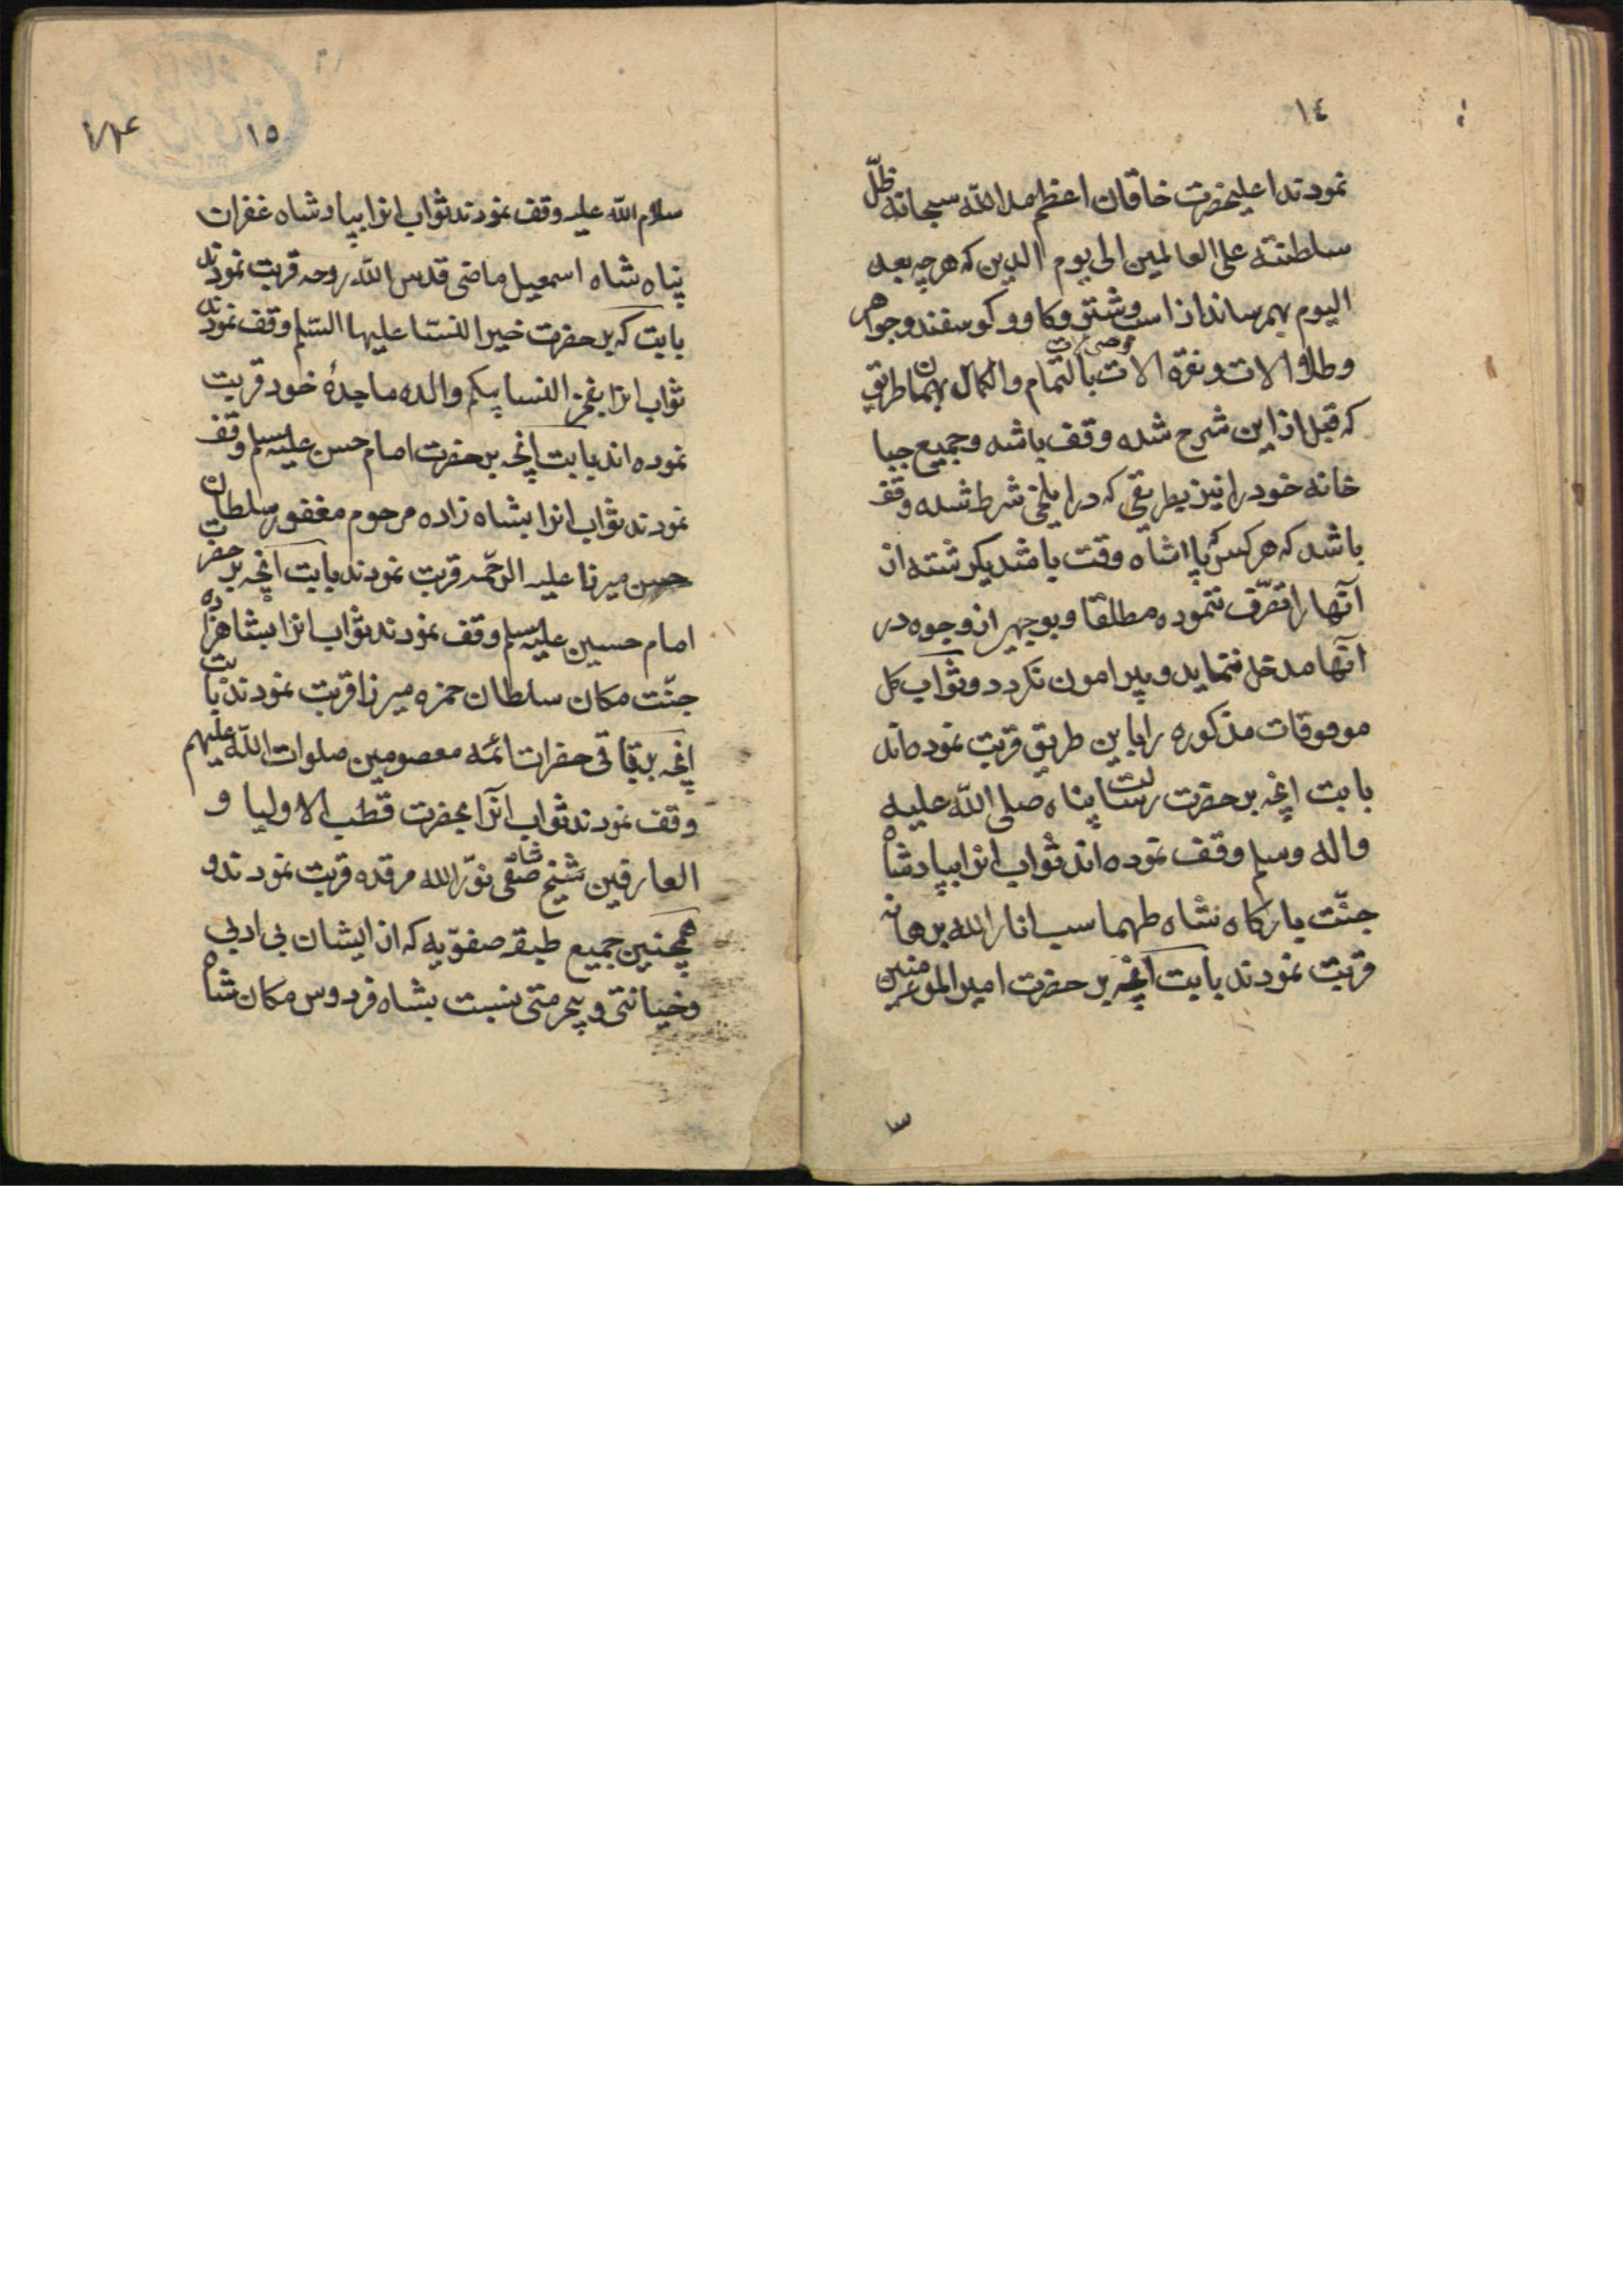 ١٤
نمودند اعلیحضرت خاقان اعظم مد الله سبحانه ظلّ
سلطنته علی العالمین الی یوم الدین که هرچه بعد
الیوم بهم رساند از اسب و شتر و کاو و کوسفند و جواهر
و طلا الات و نقره الات بالتمام والکمال بهمان طریق
که قبل از این شرح شده وقف باشه و جمیع جبا
خانه خود را نیز بطریقی که در ایلخی شرط شده وقف
باشد که هرکس که پادشاه وقت باشد یکرشته از
آنها را تصرّف ننموده مطلقا و بوجهی از وجوه در
آنها مدخل ننماید و پیرامون نکردد و ثواب کل
موقوفات مذکوره را باین طریق قربت نموده‌اند
بابت انچه بر حضرت رسالت پناه صلی الله علیه
واله وسلم وقف نموده اند ثواب انرا بپادشاه
جنّت بارکاه شاه طهماسب انار الله برهانه
قربت نمودند بابت آنچه بر حضرت امیرالمومنین
١٥
سلام الله علیه وقف نمودند ثواب انرا بپادشاه غفران
پناه شاه اسمعیل ماضی قدس الله روحه قربت نمودند
بابت که بر حضرت خیر النسا علیها السّلم وقف نمودند
ثواب انرا بفخر النسا بیکم والده ماجدهٔ خود قربت
نموده اند بابت انچه بر حضرت امام حسن علیه‌السلم وقف
نمودند ثواب انرا بشاه زاده مرحوم مغفور سلطان
حسن میرزا علیه الرّحمه قربت نمودند بابت انچه بر حضرت
امام حسین علیه‌السلم وقف نمودند ثواب انرا بشاهزاده
جنّت مکان سلطان حمزه میرزا قربت نمودند بابت
انچه بر باقی حضرات ائمه معصومین صلوات الله علیهم
وقف نمودند ثواب آنرا بحضرت قطب الاولیا و
العارفین شیخ صفی نوّر الله مرقده قربت نمودند و
همچنین جمیع طبقه صفوّیه که از ایشان بی ادبی
و خیانتی و بیحرمتی نسبت بشاه فردوس مکان شاه